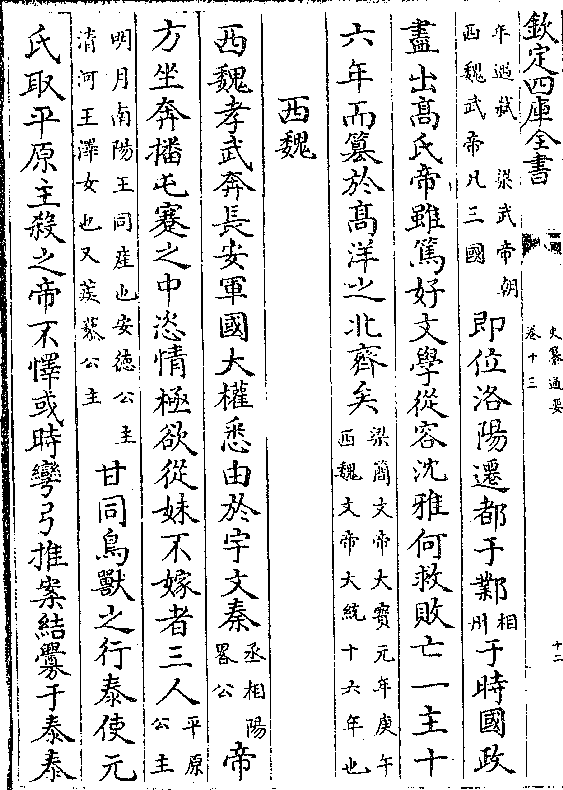 欽定四庫全書
史纂通要
卷十三
十二
年遇弑 梁武帝朝
西魏武帝凡三國
即位洛陽遷都于鄴相州于時國政
盡出高氏帝雖篤好文學從容沈雅何救敗亡一主十
六年而篡於高洋之北齊矣
梁簡文帝大寳元年庚午
西魏文帝大統十六年也
西魏
西魏孝武奔長安軍國大權悉由於宇文泰丞相陽畧公帝
方坐奔播屯蹇之中恣情極欲從妹不嫁者三人平原公主
明月南陽王同産也安德公主
清河王澤女也又蒺藜公主
甘同鳥獸之行泰使元
氏取平原主殺之帝不懌或時彎弓推案結釁于泰泰